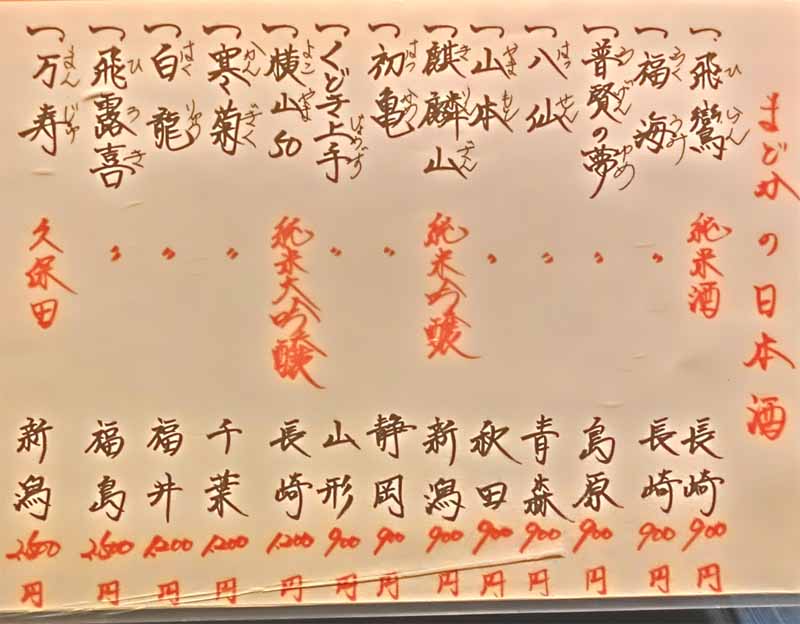 まどかの日本酒
一、飛鸞 ひらん 純米酒 長崎 900円
一、福海 ふくうみ 〃 長崎 900円
一、普賢の夢 ふげん ゆめ 〃 島原 900円
一、八仙 はっせん 〃 青森 900円
一、山本 やまもと 〃 秋田 900円
一、麒麟山 きりんざん 純米吟醸 新潟 900円
一、初亀 はつかめ 〃 静岡 900円
一、くどき上手 じょうず 〃 山形 900円
一、横山50 よこやま 純米大吟醸 長崎 1,200円
一、寒菊 かんぎく 〃 千葉 1,200円
一、白龍 はくりゅう 〃 福井 1,200円
一、飛露喜 ひろき 〃 福島 2,500円
一、万寿 まんじゅ 久保田 新潟 2,500円